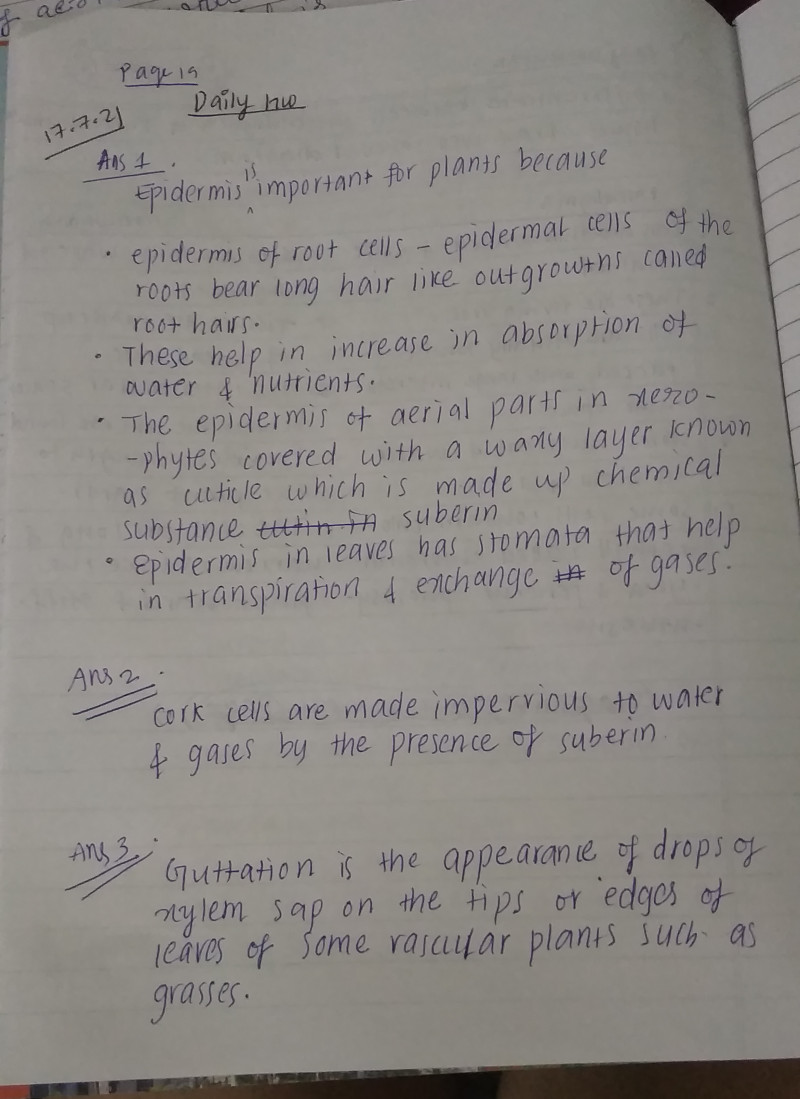 Page 19
Daily HW
17.7.21
Ans 1.
Epidermis is important for plants because
• epidermis of root cells - epidermal cells of the
roots bear long hair like outgrowths called
root hairs.
• These help in increase in absorption of
water & nutrients.
• The epidermis of aerial parts in xero-
-phytes covered with a waxy layer known
as cuticle which is made up chemical
substance cutin in suberin
• Epidermis in leaves has stomata that help
in transpiration & exchange in of gases.
Ans 2.
Cork cells are made impervious to water
& gases by the presence of suberin.
Ans 3.
Guttation is the appearance of drops of
xylem sap on the tips or edges of
leaves of some vascular plants such as
grasses.